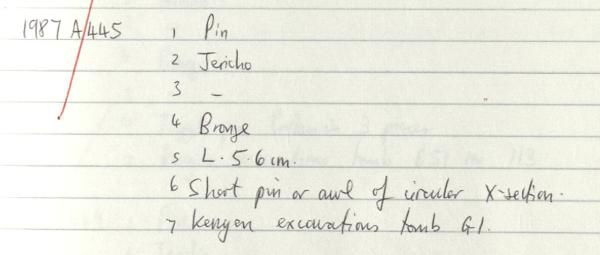 1987 A/445 1 Pin
2 Jericho
3 –
4 Bronze
5 L. 5.6 cm.
6 Short pin or awl of circular X-section.
7 Kenyon excavations tomb G1.